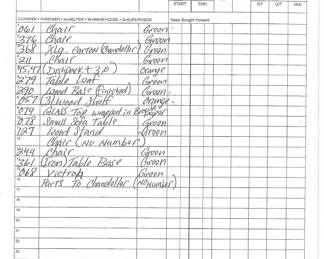 START END S/T O/T M/H
D=DRIVER P=PACKER H=HELPER W=WAREHOUSE S=SUPERVISOR Totals Brought Forward
061 Chair Green
376 Chair Green
368 Xlg. Carton (Chandelier) Green
211 Chair Green
45,47 (Dishpack + 3.0) Orange
279 Table Leaf Green
290 Wood Base (finished) Green
057 (3) Wood Shelf Orange
079 Glass Top wrapped in Brown Paper
078 Small Sofa Table Green
727 Wood Stand Green
Chair (No Number)
244 Chair Green
361 (Iron) Table Base Green
068 Victrola Green
Parts To Chandelier (No Number)